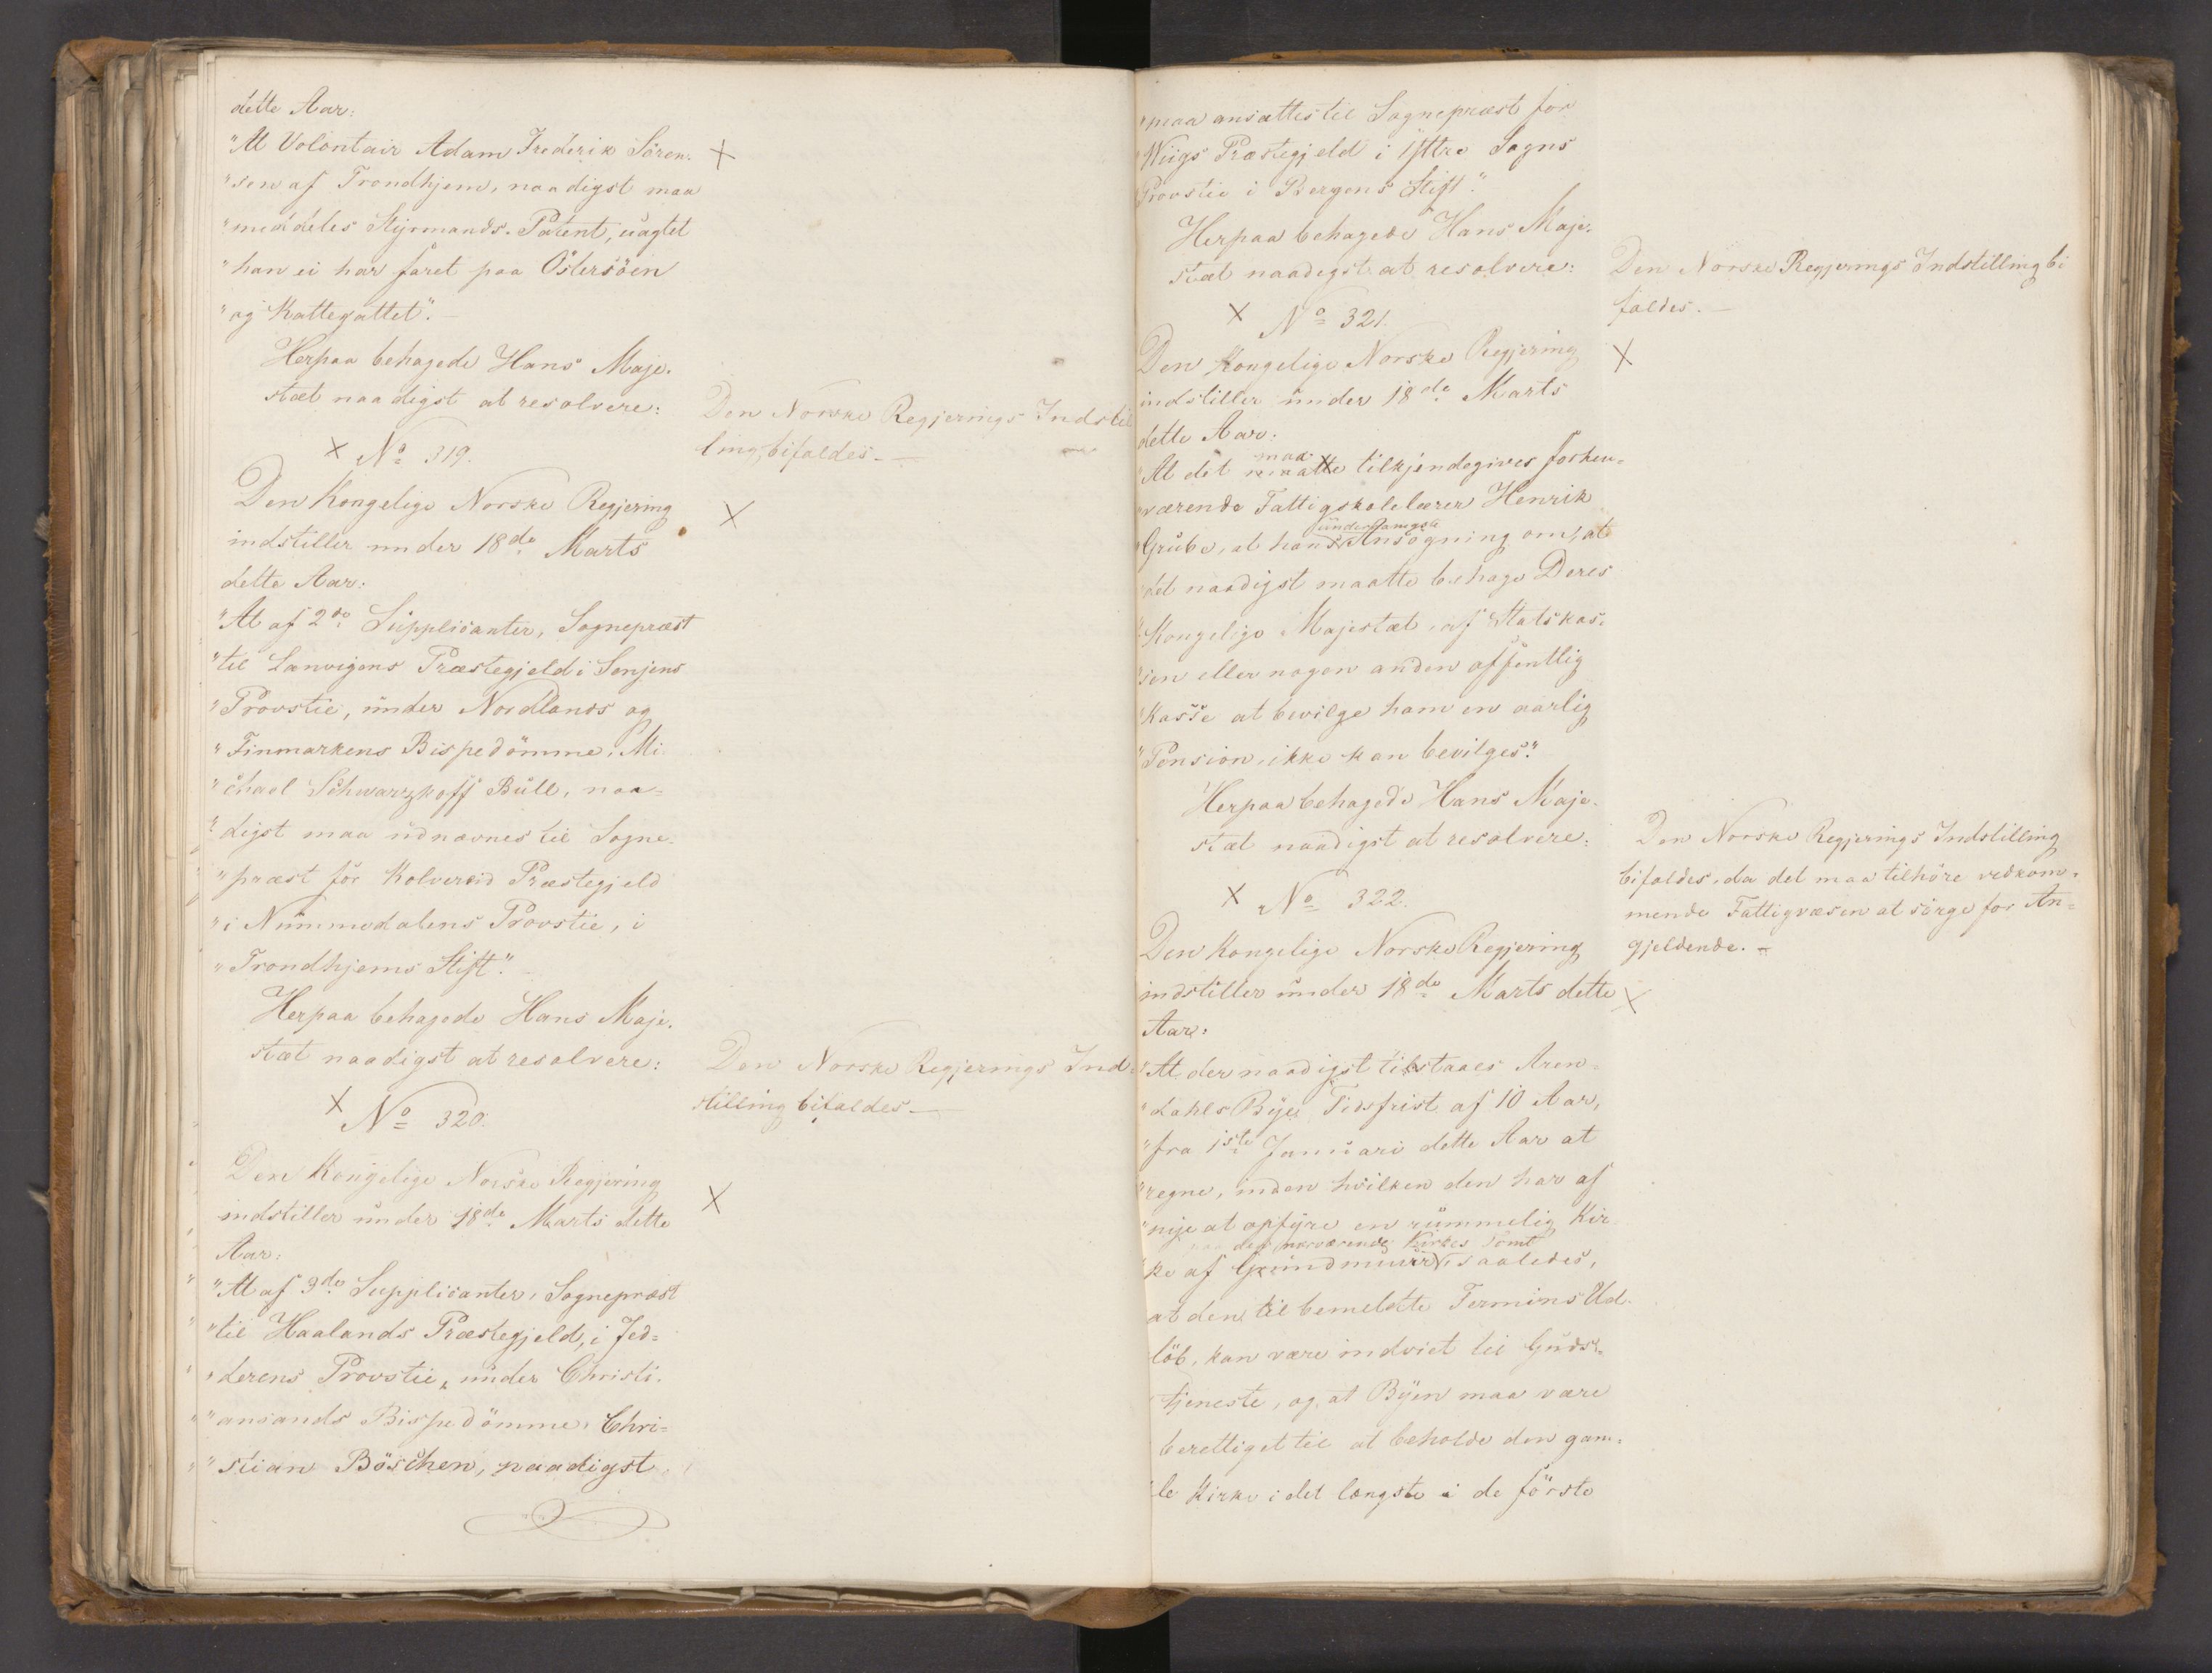 dette Aar:
"At Volontair Adam Frederik Sören-
"sen af Trondhjem, naadigst maa
"meddeles Styrmands-Patent, uagtet
"han ei har faret paa Östersöen
"og Kattegattet".
Herpaa behagede Hans Maje-
stæt naadigst at resolvere:
Den Norske Regjerings Indstil
ling bifaldes.
No 319.
Den Kongelige Norske Regjering
indstiller under 18de Marts
dette Aar:
"At af 2de Supplicanter, Sognepræst
"til Lanvigens Præstegjeld i Senjens
"Provstie, under Nordlands og
"Finmarkens Bispedömme, Mi
"chael Schwarzkoff Bull, naa=
"digst maa udnævnes til Sogne-
"præst for Kolvereid Præstegjeld
"i Nummedalens Provstie, i
"Trondhjems Stift".
Herpaa behagede Hans Maje-
stæt naadigst at resolvere:
Den Norske Regjerings Ind-
stilling bifaldes.
No 320.
Den Kongelige Norske Regjering
indstiller under 18de Marts dette
Aar:
"At af 3de Supplicanter, Sognepræst
"til Haalands Præstegjeld, i Jed=
"derens Provstie, under Christi-
"ansands Bispedömme, Chri=
"stian Böschen, naadigst
"maa ansættes til Sognepræst for
"Wiigs Præstegjeld i Yttre Sogns
Provstie i Bergens Stift".
Herpaa behagede Hans Maje-
stæt naadigst at resolvere:
Den Norske Regjerings Indstilling bi
faldes.
No 321.
Den Kongelige Norske Regjering
indstiller under 18de Marts
dette Aar:
maa
"At det maatte tilkjendegives forhen=
"værende Fattigskolelærer Henrik
underdanigste
"Grube, at hans Ansögning om, at
"det naadigst maatte behage Deres
"Kongelige Majestæt, af Statskas-
"sen eller nogen anden offentlig
"Kasse at bevilge ham en aarlig
"Pension, ikke kan bevilges".
Herpaa behagede Hans Maje-
stæt naadigst at resolvere:
Den Norske Regjerings Indstilling
bifaldes, da det maa tilhöre vedkom-
mende Fattigvæsen at sörge for An=
gjeldende.
No 322.
Den Kongelige Norske Regjering
indstiller under 18de Marts dette
Aar:
"At der naadigst tilstaaes Aren-
"dahls Bye Tidsfrist af 10 Aar,
"fra 1ste Januari dette Aar at
"regne, inden hvilken den har af
"nye at opföre en rummelig Kir
paa den nærværende Kirkes Tomt
"ke af Grundmuur, saaledes,
at den, til bemeldte Termins Ud-
löb, kan være indviet til Guds-
tjeneste, og, at Byen maa være
berettiget til at beholde den gam=
le Kirke i det længste i de förste